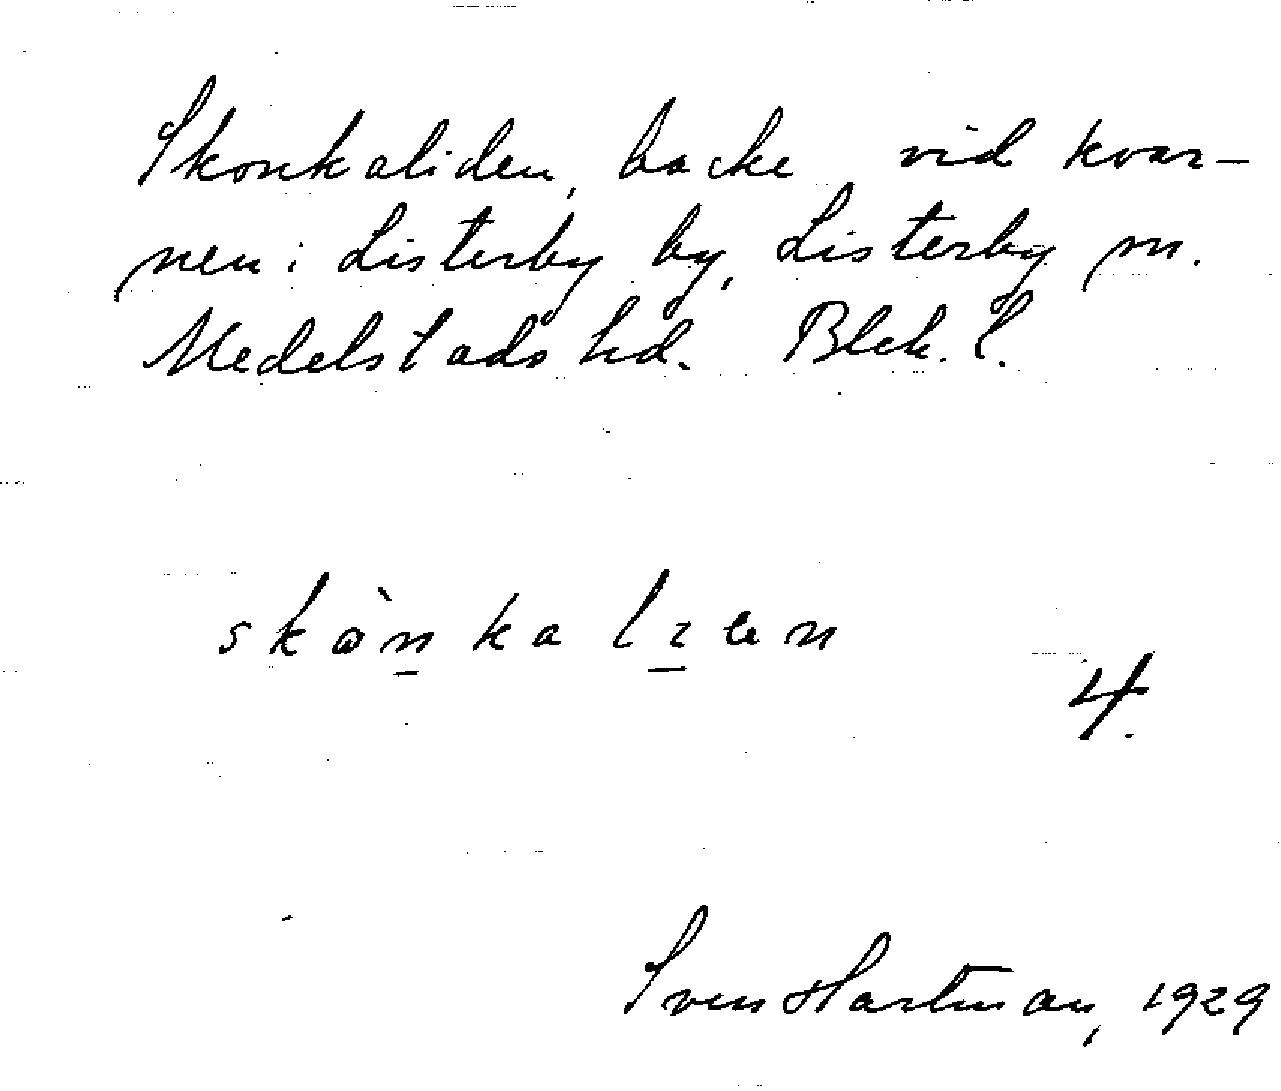 Skonkaliden, backe vid kvar-
nen i Listerby by, Listerby sn.
Medelstads hd. Blek. l.
skònkalıen
4.
Sven Hartman, 1929